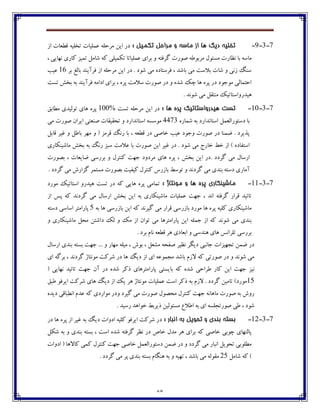 3-7-9- تخلیه دیگ ها از ماسه و مراحل تکمیل : در این مرحله عملیات تخلیه قطعات از
ماسه با نظارت مسئول مربوطه صورت گرفته و برای عملیاتا تکمیلی که شامل تمیز کاری نهایی ،
سنگ زنی و شات بلاست می باشد ، فرستاده می شود . در این مرحله از فرآیند بالغ بر 16 عیب
احتمالی موجود در پره ها چک شده و در صورت سلامت پره ، برای ادامه فرآیند به بخش تست
هیدرواستاتیک منتقل می شوند .
3-7-10- تست هیدرواستاتیک پره ها : در این مرحله تست 100% پره های تولیدی مطابق
با دستورالعمل استاندارد به شماره 4473 موسسه استاندارد و تحقیقات صنعتی ایران صورت می
پذیرد . ضمنا در صورت وجود عیب خاصی در قطعه ، با رنگ قرمز ( و مهر باطل و غیر قابل
استفاده ) از خط خارج می شود . در غیر این صورت با علامت سبز رنگ به بخش ماشینکاری
ارسال می گردد .در این بخش ، پره های مردود جهت کنترل و بررسی ضایعات ، بصورت
آماری دسته بندی می گردند و توسط بازرس کنترل کیفیت بصورت مستمر گزارش می گردد .
3-7-11- ماشینکاری پره ها و مونتاژ : تمامی پره هایی که در تست هیدرو استاتیک مورد
تائید قرار گرفته اند ، جهت عملیات ماشینکاری به این بخش ارسال می گردند که پس از
ماشینکاری کلیه پره ها مورد بازرسی قرار می گیرند که این بازرسی ها به 5 پارامتر اساسی دسته
بندی می شوند که از جمله این پارامترها می توان از مک و لک داشتن محل ماشینکاری و
بررسی تلرانس های هندسی و ابعادی هر قطعه نام برد .
در ضمن تجهیزات جانبی دیگر نظیر صفحه مشعل ، بوش ، میله مهار و ... جهت بسته بندی ارسال
می شوند و در صورتی که لازم باشد مجموعه ای از دیگ ها در شرکت مونتاژ گردند ، برگه ای
نیز جهت این کار طراحی شده که بایستی پارامترهای ذکر شده در آن جهت تائید نهایی (
15مورد) تامین گردد . لازم به ذکر است عملیات مونتاژ هر یک از دیگ های شرکت ایرفو طبق
روش به صورت ماهانه جهت کنترل محصول صورت می گیرد ودر مواردی که عدم انطباقی دیده
شود ، طی صورتجلسه ای به اطلاع مسئولین ذیربط خواهد رسید .
3-7-12- بسته بندی و تحویل به انبار : در شرکت ایرفو کلیه ادوات دیگ به غیر از پره ها در
پالتهای چوبی خاصی که برای هر مدل خاص در نظر گرفته شده است ، بسته بندی و به شکل
مطلوبی تحویل انبار می گردد و در ضمن دستورالعمل خاصی جهت کنترل کمی کالاها ( ادوات
) که شامل 25 مقوله می باشد ، تهیه و به هنگام بسته بندی پر می گردد .